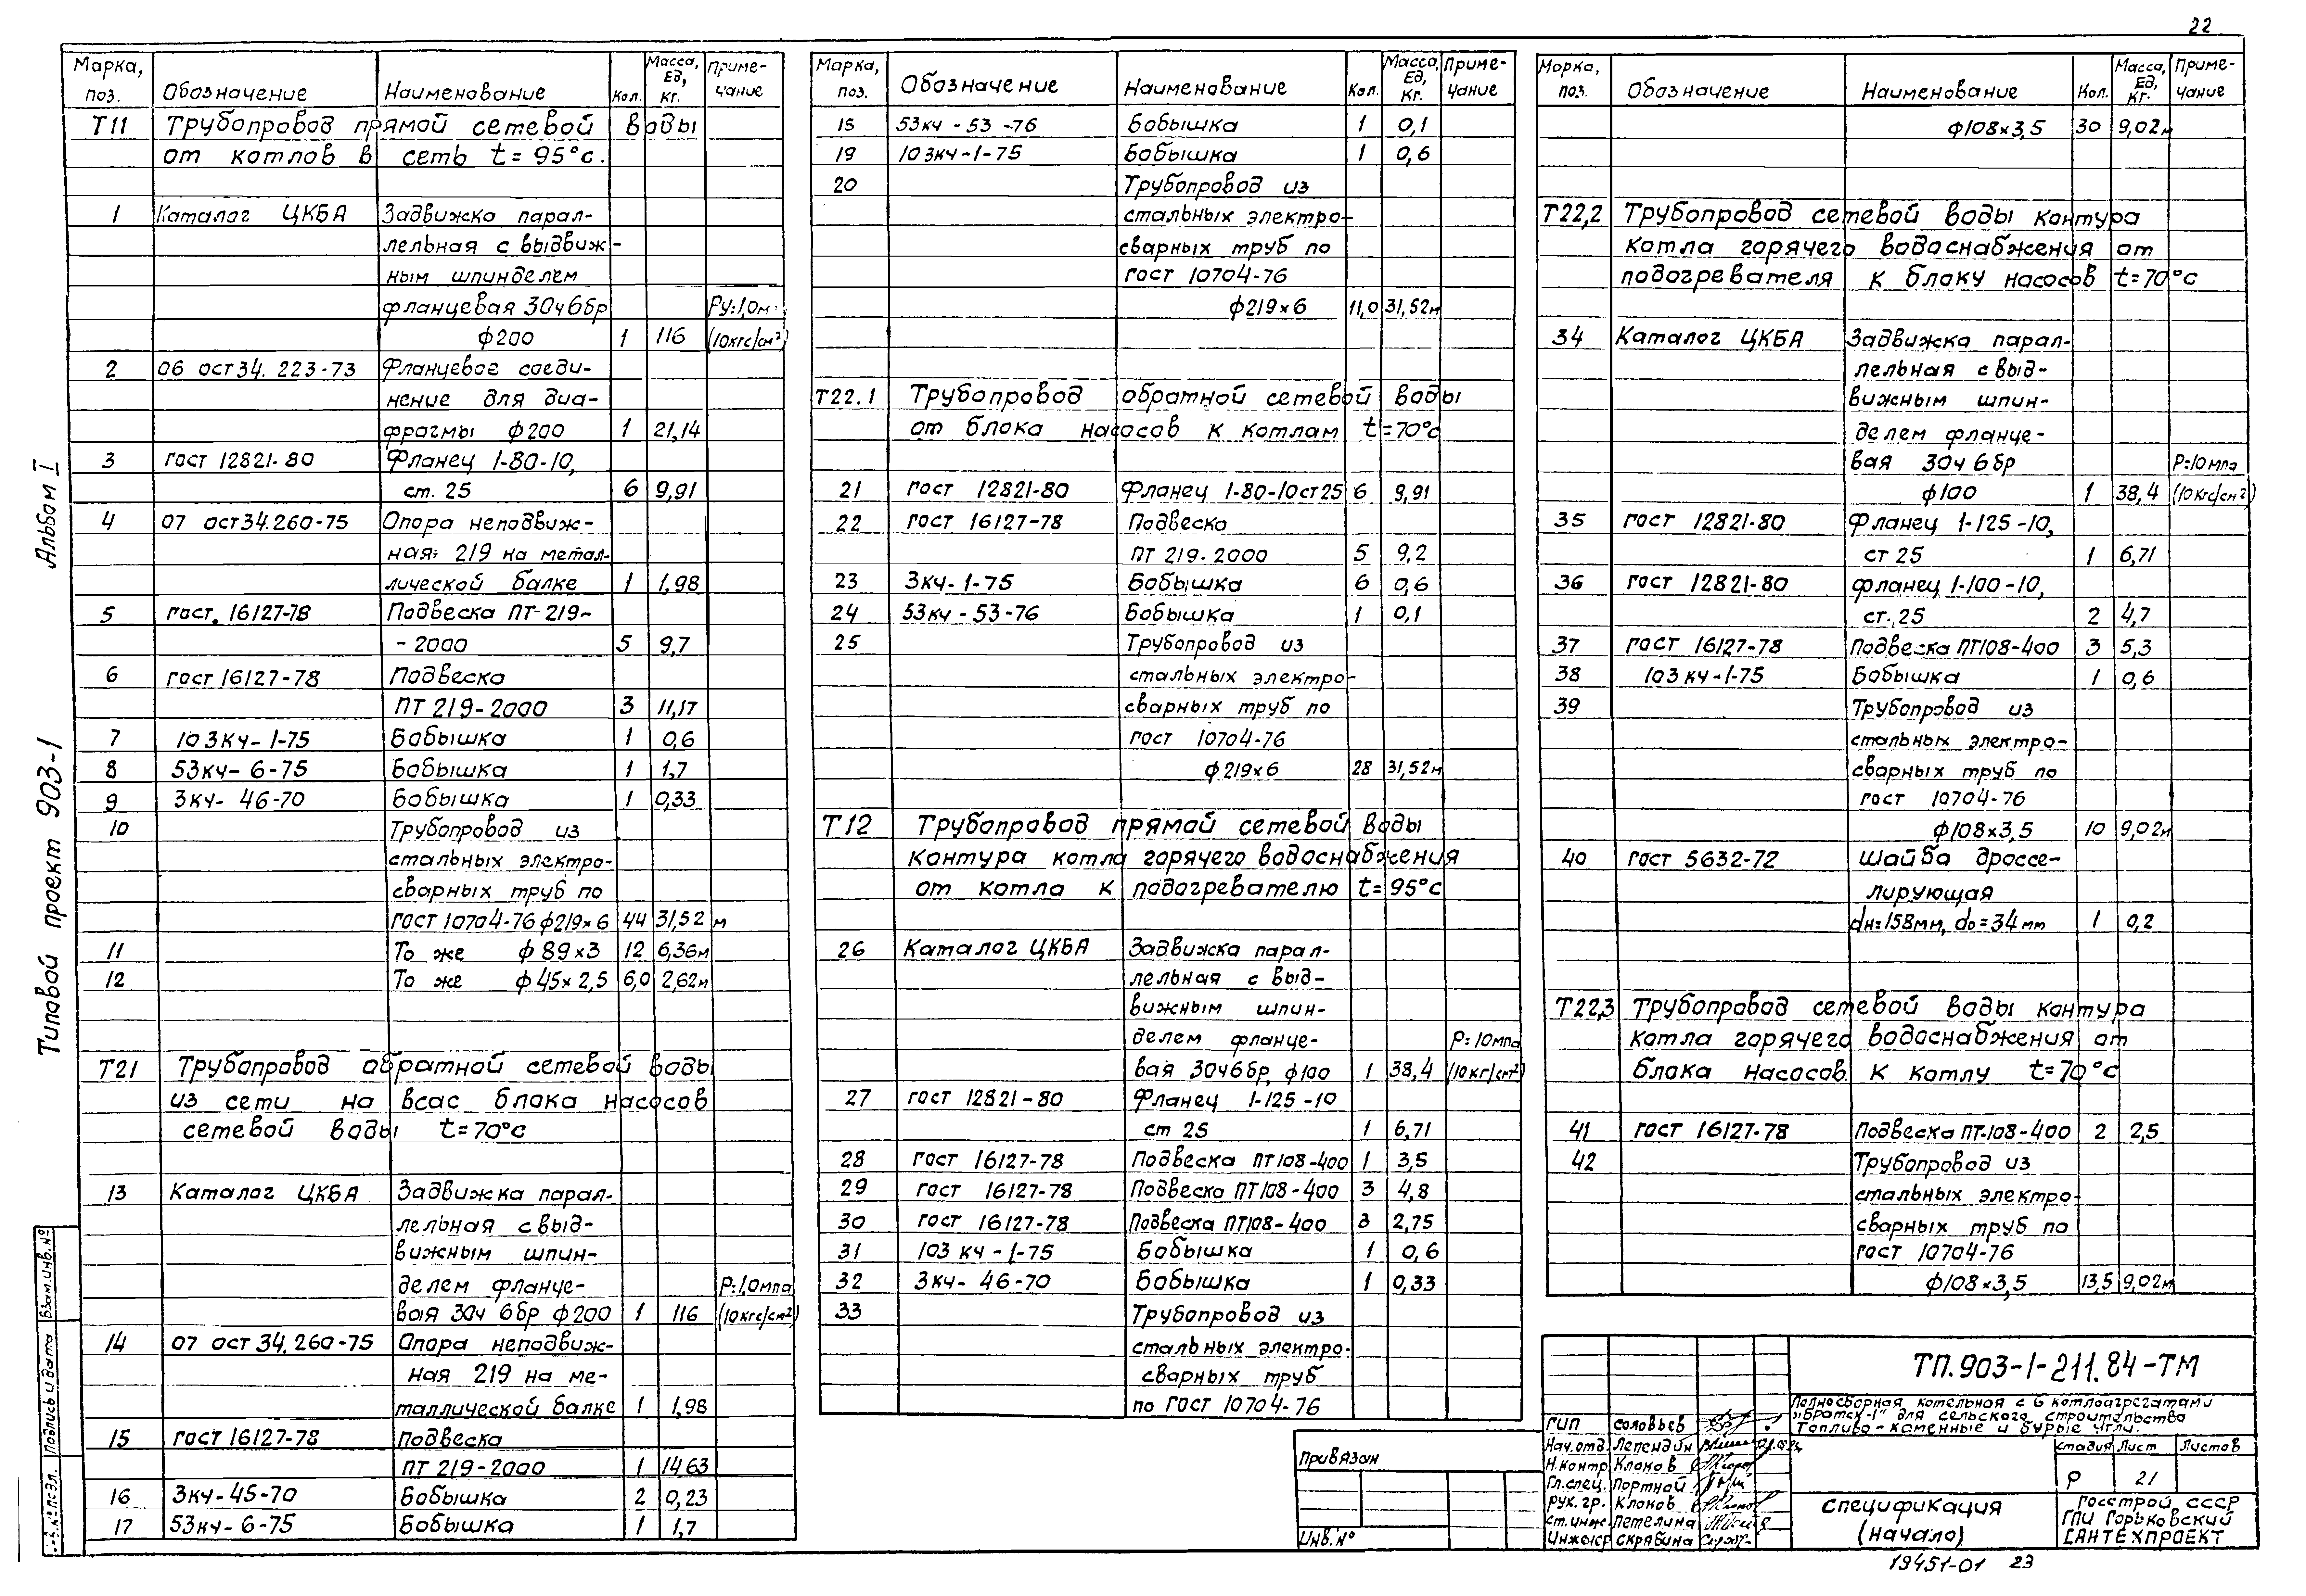 22
Марка, поз. Обозначение Наименование Кол. Масса, Ед, кг. Приме-чание
Т11 Трубопровод прямой сетевой воды
от котлов в сеть t=95°с.
1 Каталог ЦКБА Задвижка парал-
лельная с выдвиж-
ным шпинделем
фланцевая 30ч6бр Ру=1,0м
ф200 1 116 (10кгс/см²)
2 06 ост 34. 223-73 Фланцевое соеди-
нение для диа-
фрагмы ф200 1 21,14
3 гост 12821-80 Фланец 1-80-10,
ст. 25 6 9,91
4 07 ост 34.260-75 Опора неподвиж-
ная 219 на метал-
лической балке 1 1,98
5 гост. 16127-78 Подвеска ПТ-219-
-2000 5 9,7
6 гост 16127-78 Подвеска
ПТ 219-2000 3 11,17
7 103кч-1-75 Бобышка 1 0,6
8 53кч-6-75 Бобышка 1 1,7
9 3кч-46-70 Бобышка 1 0,33
10 Трубопровод из
стальных электро-
сварных труб по
гост 10704-76 ф219х6 44 31,52 м
11 То же ф89х3 12 6,36м
12 То же ф45х2,5 6,0 2,62м
Т21 Трубопровод обратной сетевой воды
из сети на всас блока насосов
сетевой воды t=70°с
13 Каталог ЦКБА Задвижка парал-
лельная с выд-
вижным шпин-
делем фланце- Р=1,0мпа
вая 30ч 6бр ф200 1 116 (10кгс/см²)
14 07 ост 34.260-75 Опора неподвиж-
ная 219 на ме-
таллической балке 1 1,98
15 гост 16127-78 Подвеска
ПТ 219-2000 1 14,63
16 3кч-45-70 Бобышка 2 0,23
17 53кч-6-75 Бобышка 1 1,7
Марка, поз. Обозначение Наименование Кол. Масса, Ед, кг. Приме-чание
18 53кч-53-76 Бобышка 1 0,1
19 103кч-1-75 Бобышка 1 0,6
20 Трубопровод из
стальных электро-
сварных труб по
гост 10704-76
ф219х6 11,0 31,52м
Т22.1 Трубопровод обратной сетевой воды
от блока насосов к котлам t=70°с
21 гост 12821-80 Фланец 1-80-10ст25 6 9,91
22 гост 16127-78 Подвеска
ПТ 219-2000 5 9,2
23 3кч-1-75 Бобышка 6 0,6
24 53кч-53-76 Бобышка 1 0,1
25 Трубопровод из
стальных электро-
сварных труб по
гост 10704-76
ф219х6 28 31,52м
Т12 Трубопровод прямой сетевой воды
контура котла горячего водоснабжения
от котла к подогревателю t=95°с
26 Каталог ЦКБА Задвижка парал-
лельная с выд-
вижным шпин-
делем фланце- Р=10мпа
вая 30ч6бр, ф100 1 38,4 (10кг/см²)
27 гост 12821-80 Фланец 1-125-10
ст 25 1 6,71
28 гост 16127-78 Подвеска ПТ108-400 1 3,5
29 гост 16127-78 Подвеска ПТ108-400 3 4,8
30 гост 16127-78 Подвеска ПТ108-400 3 2,75
31 103кч-1-75 Бобышка 1 0,6
32 3кч-46-70 Бобышка 1 0,33
33 Трубопровод из
стальных электро-
сварных труб
по гост 10704-76
Марка, поз. Обозначение Наименование Кол. Масса, Ед, кг. Приме-чание
ф108х3,5 30 9,02м
Т22,2 Трубопровод сетевой воды контура
котла горячего водоснабжения от
подогревателя к блоку насосов t=70°с
34 Каталог ЦКБА Задвижка парал-
лельная с выд-
вижным шпин-
делем фланце-
вая 30ч 6бр Р=10мпа
ф100 1 38,4 (10кгс/см²)
35 гост 12821-80 Фланец 1-125-10,
ст 25 1 6,71
36 гост 12821-80 фланец 1-100-10,
ст. 25 2 4,7
37 гост 16127-78 Подвеска ПТ108-400 3 5,3
38 103кч-1-75 Бобышка 1 0,6
39 Трубопровод из
стальных электро-
сварных труб по
гост 10704-76
ф108х3,5 10 9,02м
40 гост 5632-72 шайба дроссе-
лирующая
dн=158мм, dо=34мм 1 0,2
Т22,3 Трубопровод сетевой воды контура
котла горячего водоснабжения от
блока насосов к котлу t=70°с
41 гост 16127-78 Подвеска ПТ-108-400 2 2,5
42 Трубопровод из
стальных электро-
сварных труб по
гост 10704-76
ф108х3,5 13,5 9,02м
Альбом I
Типовой проект 903-1
Взам.инв.№
Подпись и дата
Привязан
Инв.№
ТП.903-1-211.84-ТМ
Полносборная котельная с 6 котлоагрегатами
„Братск-1" для сельского строительства
Топливо-каменные и бурые угли.
ГИП Соловьев
Нач.отд. Лепендин
Н.контр Клоков
Гл.спец. Портной
рук.гр. Клоков
ст.инж. Петелина
Инженер Скрябина
стадия Лист Листов
Р 21
Спецификация
(начало)
Госстрой СССР
ГПИ Горьковский
САНТЕХПРОЕКТ
19451-01 23